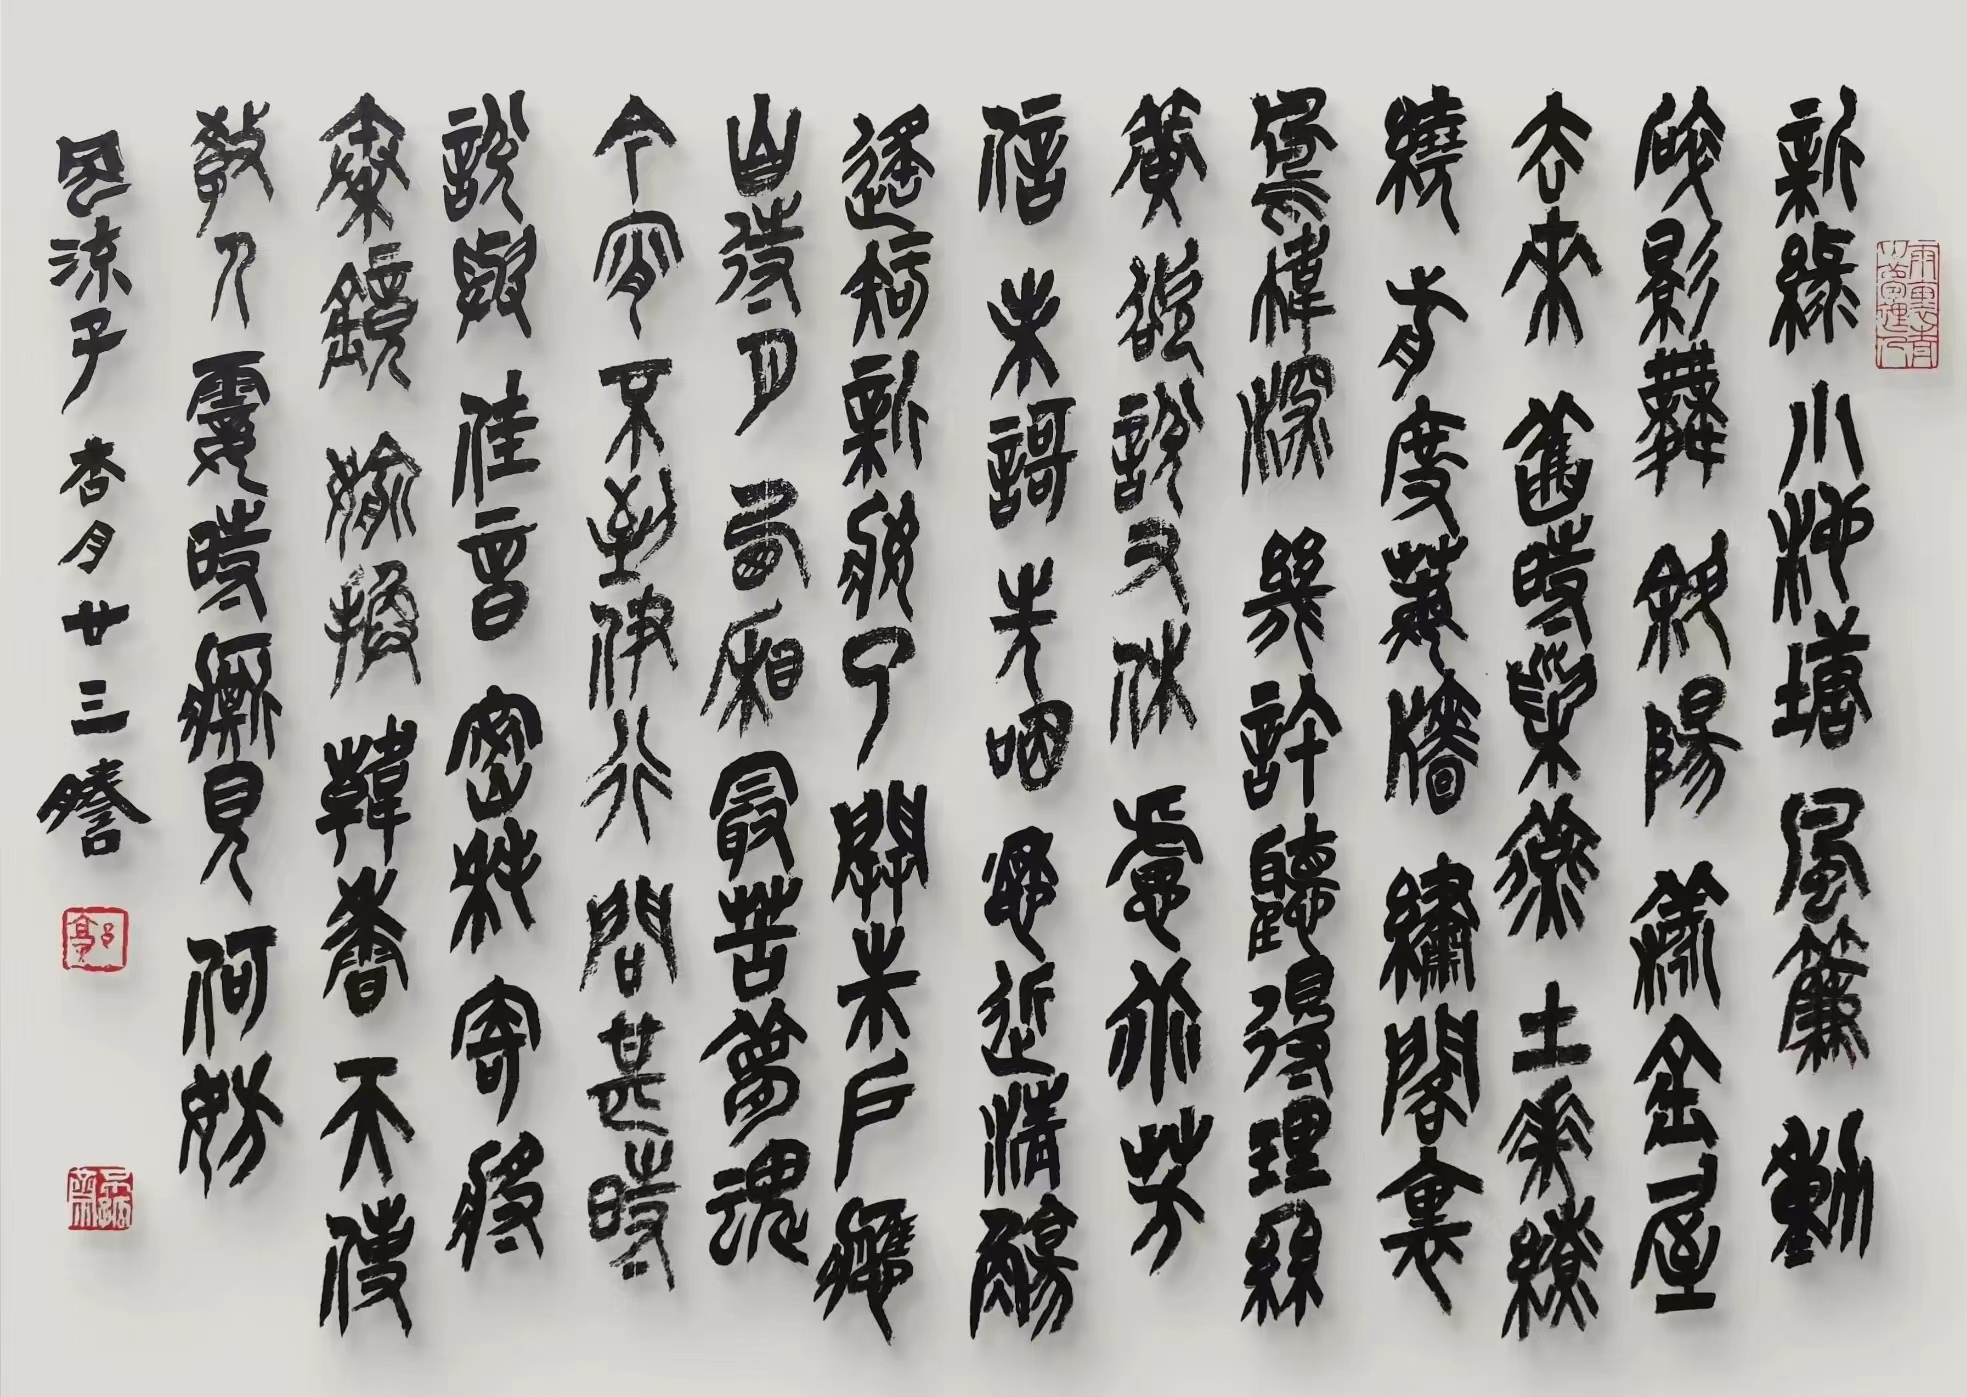 新綠小池塘風簾動
碎影舞斜陽羨金屋
去來舊時巢燕土花繚
繞前度莓牆繡閣裏
鳳幃深幾許聽得理絲
簧欲說又休慮乖芳
信未歌先咽愁近清觴
遙知新妝了開朱戶應
自待月西廂最苦夢魂
今宵不到伊行問甚時
說與佳音密耗寄將
秦鏡偷換韓香天便
教人霎時廝見何妨
風流子 杏月廿三
郭